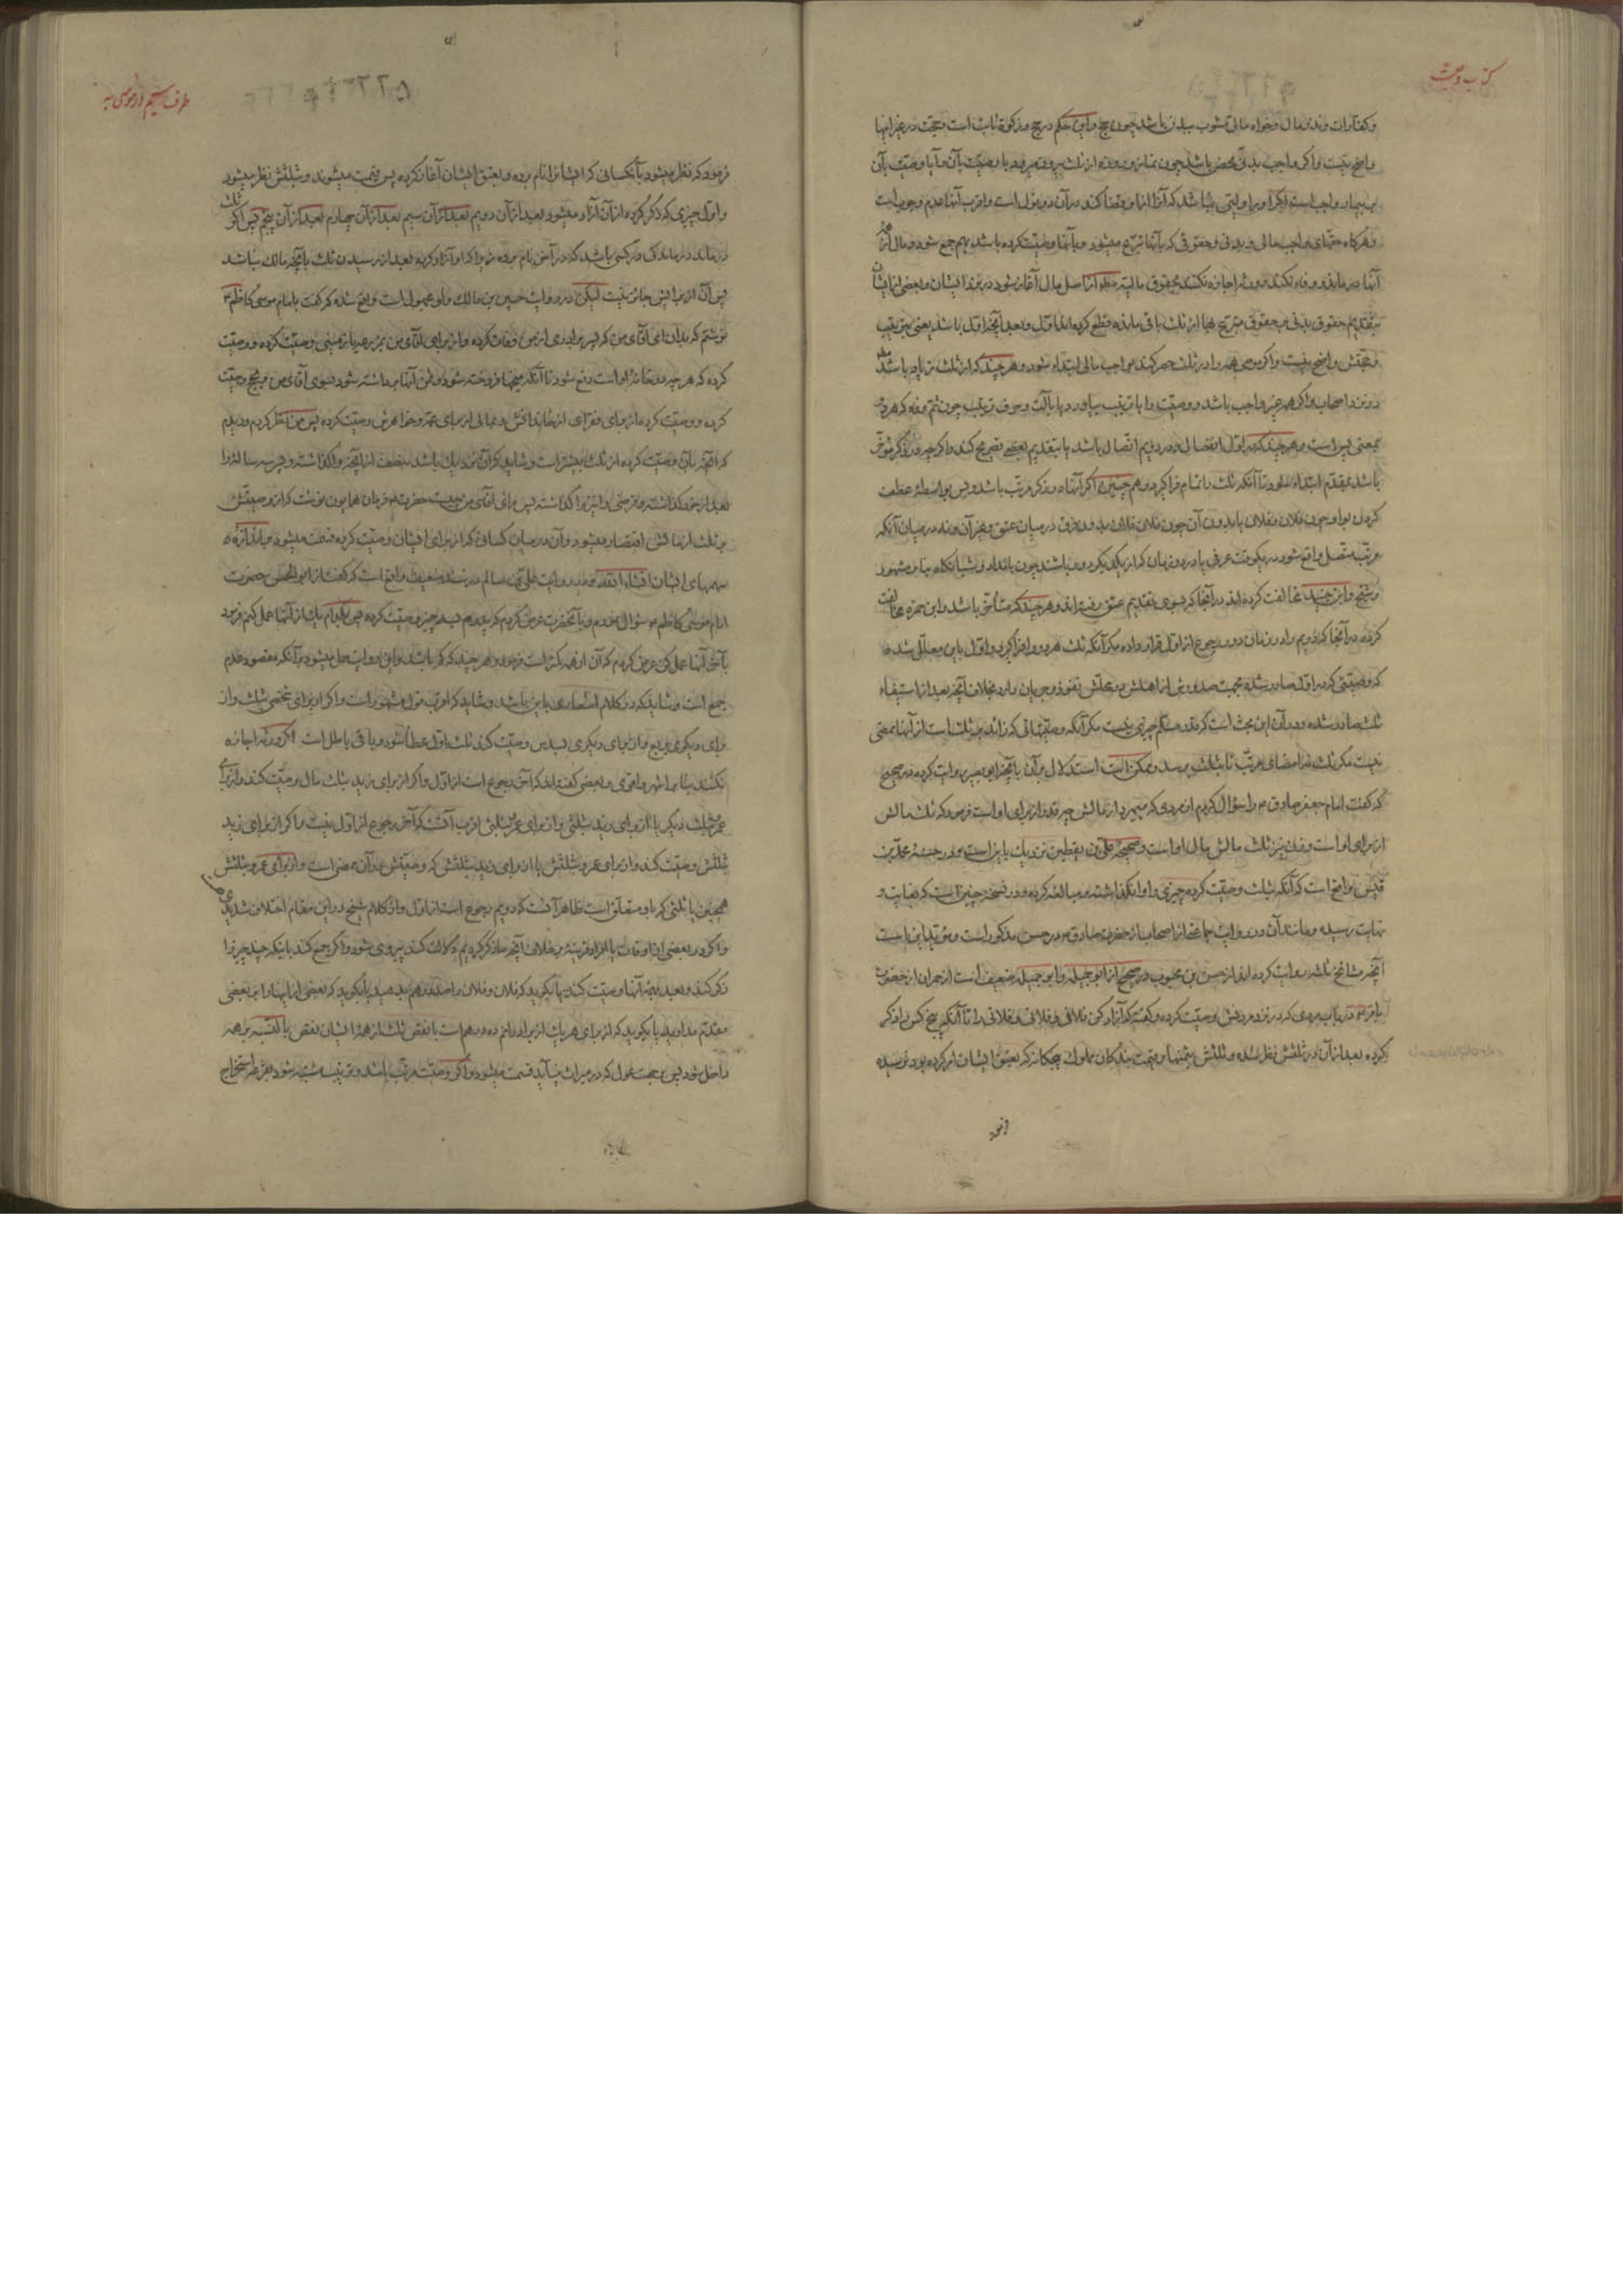 کتاب وصیت
وکفارات ونذر مال وخواه مالی مشوب ببدن باشد چون حج واین حکم در حج وزکوة ثابت است وحجت در غیر اینها
واضح نیست واگر واجب بدنی محض باشد چون نماز وروزه از ثلث بیرون میرود با وصیت بآن وآیا وصیت بآن
بر بیمار واجب است اگر او را ولیی نباشد که آنرا از او قضا کند در آن دو قول است واقرب آنها عدم وجوب است
وهرگاه حقهای واجب مالی وبدنی وحقوقی که بآنها تبرع میشود وبآنها وصیت کرده باشد بهم جمع شود ومال از همه
آنها درماند ووفاء نکند وورثه اجازه نکنند بحقوق مالیه مطلقا از اصل مال آغاز شود در نزد ایشان وبعضی از ایشان
بتقدیم حقوق بدنی بر حقوق متبرع بها از ثلث باقی مانده قطع کرده‌اند اول وبعد آنچه اول باشد یعنی بترتیب
وحجتش واضح نیست واگر موصی همه را در ثلث حصر کند بواجب مالی ابتداء شود وهر چند که از ثلث زیاده باشد
در نزد اصحاب واگر همه غیر واجب باشد ووصیت را با ترتیب بیاورد یا بآلت وحرف ترتیب چون ثم وفاء که هر دو
بمعنی پس است وهر چند که در اول انفصال ودر دویم اتصال باشد یا بتقدیم لفظی تصریح کند واگر چه در ذکر مؤخر
باشد بمقدم ابتداء شود تا آنکه ثلث را تمام فرا گیرد وهم چنین اگر آنها در ذکر مرتب باشد وبس بواسطه عطف
کردن بواو چون فلان وفلان یا بدون آن چون فلان فلان بدون فرق در میان عتق وغیر آن ونه در میان آنکه
مرتب متصل واقع شود در یکوقت عرفی یا در دو زمان که از یکدیگر دور باشند چون بامداد وشبانگاه بنا بر مشهور
وشیخ وابن جنید مخالفت کرده‌اند در آنجا که بسوی تقدیم عتق رفته‌اند وهر چند که متأخر باشد وابن حمزه مخالفت
کرده در آنجا که دویم را در زمان دور رجوع از اول قرار داده مگر آنکه ثلث هر دو را فرا گیرد واول باین معلل شده
که وصیتی که در اول صادر شده بجهت صدورش از اهلش در محلش نفوذ وجریان دارد بخلاف آنچه بعد از استیفاء
ثلث صادر شده ودر آن این بحث است که مقدم مسلم چیزی نیست مگر آنکه وصیتهائی که زائد بر ثلث است از آنها ممضی
نیست مگر ثلث نه امضای مرتب تا بثلث برسد وممکن است استدلال بر آن بآنچه ابو بصیر روایت کرده در صحیح
که گفت امام جعفر صادق ع را سؤال کردم از مردی که میمیرد از مالش چه قدر از برای او است فرمود که ثلث مالش
از برای او است وزن نیز ثلث مالش مال او است وصحیحه علی بن یقطین نزدیک باین است ودر حسنه محمد بن
قیس واضح است که آنکه بثلث وصیت کرده چیزی را وانگذاشته ومبالغه کرده ودر نسخه چنین است که بغایت و
نهایت رسیده ومانند آن در روایت جماعتی از اصحاب از حضرت صادق ع در حسن مذکور است ومؤید این است
آنچه مشایخ ثلثه روایت کرده‌اند از حسن بن محبوب در صحیح از ابو جمیله وابو جمیله ضعیف است از حمران از حضرت
باقر ع در باب مردی که در نزد مردنش وصیت کرده وگفته که آزاد کن فلانی وفلانی وفلانی را تا آنکه پنج کس را ذکر
کرده بعد از آن در ثلثش نظر شده وثلثش بثمنها وقیمت بندگان مملوک پنجگانه که بعتق ایشان امر کرده بود نرسیده
فرمود
طرف سیم در موصی به
فرمود که نظر میشود بآنکسانی که ایشانرا نام برده وبعتق ایشان آغاز کرده پس قیمت میشوند وبثلثش نظر میشود
واول چیزی که ذکر کرده از آن آزاد میشود بعد از آن دویم بعد از آن سیم بعد از آن چهارم بعد از آن پنجم پس اگر ثلث
درماند درماندگی در کسی باشد که در آخر نام برده زیرا که او آزاد کرده بعد از رسیدن ثلث بآنچه مالک نباشد
پس آن از برایش جائز نیست لیکن در روایت حسین بن مالک واو مجهول است واقع شده که گفت بامام موسی کاظم ع
نوشتم که بدان ای آقای من که پسر برادری از من وفات کرده واز برای آقای من بمزرعه یا زمینی وصیت کرده ووصیت
کرده که هر چه در خانه او است دفع شود تا آنکه میخها فروخته شود وثمن آنها برداشته شود بسوی آقای من وبحج وصیت
کرده ووصیت کرده از برای فقرای از خاندانش وبمالی از برای عمه وخواهرش وصیت کرده پس من نظر کردم ودیدم
که آنچه بآن وصیت کرده از ثلث بیشتر است وشاید که آن نزدیک باشد بنصف از آنچه واگذاشته وپسر سه ساله را
بعد از خود گذاشته وقرضی را نیز واگذاشته پس رای آقای من چیست حضرت ع فرمان همایون نوشت که از وصیتش
بر ثلث از مالش اقتصار میشود وآن در میان کسانی که از برای ایشان وصیت کرده قسمت میشود باندازه
سهمهای ایشان انشاء الله ودر روایت علی بن سالم در سند ضعیف واقع است که گفت از ابو الحسن حضرت
امام موسی کاظم ع سؤال نمودم وبآنحضرت عرض کردم که پدرم بسه چیز وصیت کرده پس بکدام یک از آنها عمل کنم فرمود
بآخر آنها عمل کن عرض کردم که آن از همه کمتر است فرمود وهر چند که کم باشد واین روایت حمل میشود بر آنکه مقصود عدم
جمع است وشاید که در کلام اشعاری باین باشد وشاید که اقرب قول مشهور است واگر از برای شخصی بثلث واز
برای دیگری بربع واز برای دیگری بسدس وصیت کند ثلث باول عطا شود وباقی باطل است اگر ورثه اجازه
نکنند بنا بر اشهر واقوی وبعضی گفته‌اند که آخر رجوع است از اول واگر از برای زید بثلث مال وصیت کند واز برای
عمر بثلث دیگر یا از برای زید بثلثی واز برای عمر بثلثی اقرب آنست که آخر رجوع از اول نیست واگر از برای زید
بثلثش وصیت کند واز برای عمرو بثلثش یا از برای زید بثلثش که وصیتش در آن ممضی است واز برای عمرو بثلثش
همچنین یا ثلثی که باو متعلق است ظاهر آنست که دویم رجوع است از اول واز کلام شیخ در این مقام اختلافی شدید
واگر در بعضی از اوقات یا افراد قرینه بر خلاف آنچه ما ذکر کردیم دلالت کند پیروی شود واگر جمع کند باینکه چند چیز را
ذکر کند وبعد بهمه آنها وصیت کند یا بگوید که فلان وفلان را صد درهم بدهید یا بگوید که بعضی از اینها را بر بعضی
مقدم مدارید یا بگوید که از برای هر یک از برادرانم ده درهم است با نقص ثلث از همه ایشان نقص بالنسبه بر همه
داخل شود پس بر جهت عول که در میراث میآید قسمت میشود واگر وصیت مرتب باشد وترتیب مشتبه شود بقرعه استخراج